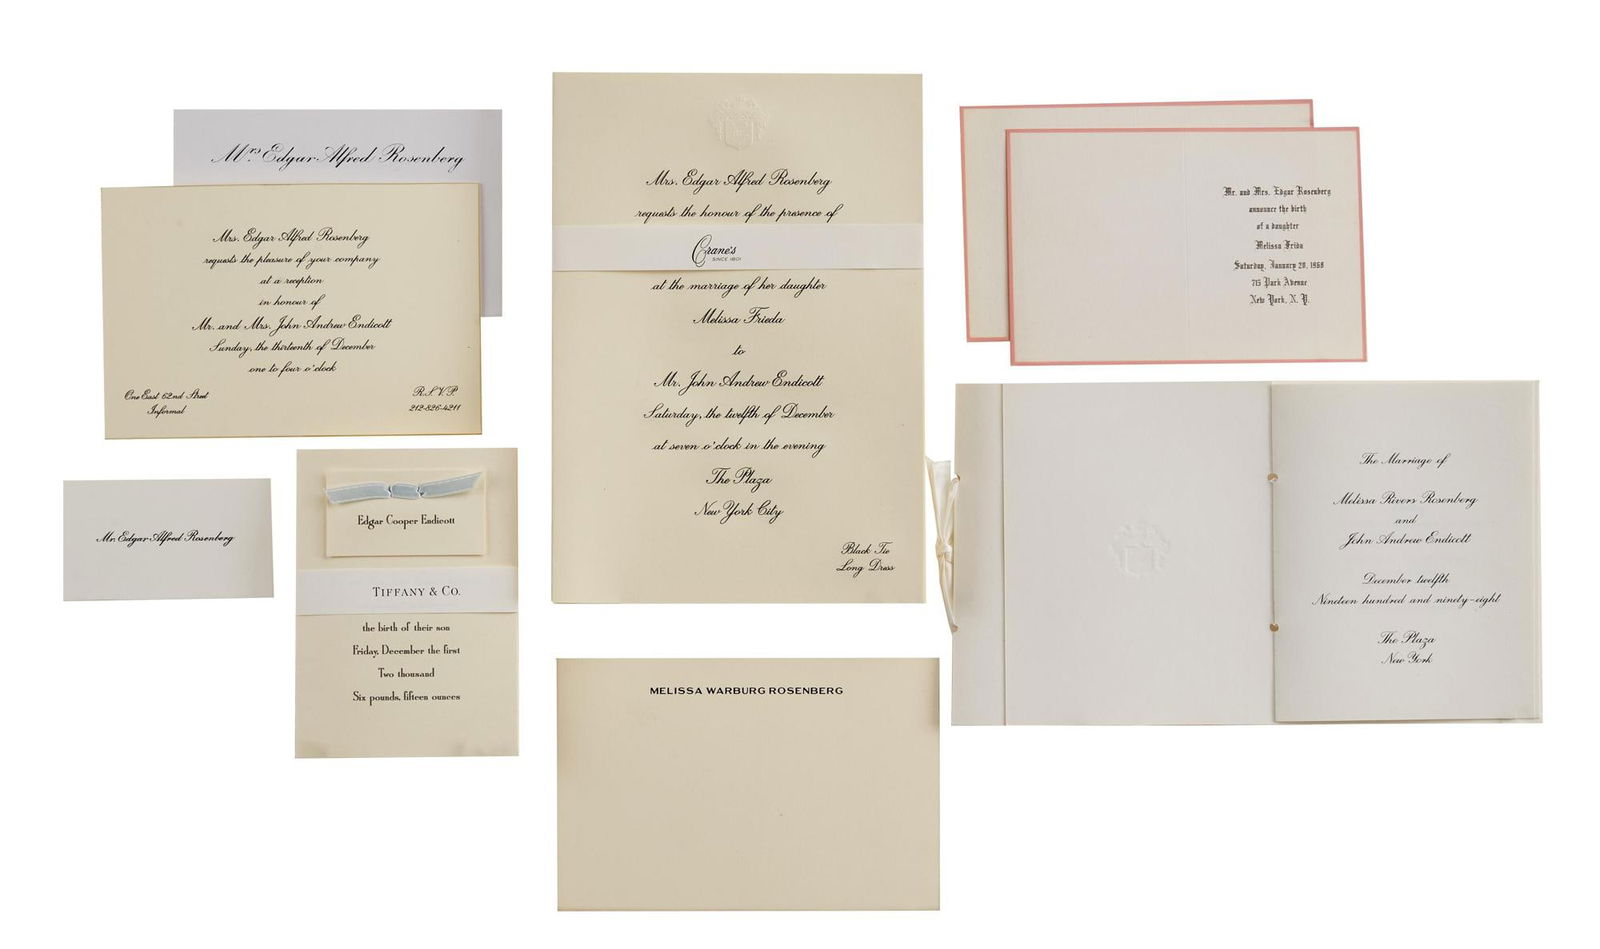 Mrs Edgar Alfred Rosenberg
Mrs. Edgar Alfred Rosenberg
requests the pleasure of your company
at a reception
in honour of
Mr. and Mrs. John Andrew Endicott
Sunday, the thirteenth of December
one to four o'clock
One East 62nd Street
Informal
R.S.V.P.
212-826-4211
Mr. Edgar Alfred Rosenberg
Edgar Cooper Endicott
TIFFANY & CO.
the birth of their son
Friday, December the first
Two thousand
Six pounds, fifteen ounces
Mrs. Edgar Alfred Rosenberg
requests the honour of the presence of
Crane's
SINCE 1801
at the marriage of her daughter
Melissa Frieda
to
Mr. John Andrew Endicott
Saturday, the twelfth of December
at seven o'clock in the evening
The Plaza
New York City
Black Tie
Long Dress
MELISSA WARBURG ROSENBERG
Mr. and Mrs. Edgar Rosenberg
announce the birth
of a daughter
Melissa Frida
Saturday, January 20, 1968
715 Park Avenue
New York, N. Y.
The Marriage of
Melissa Rivers Rosenberg
and
John Andrew Endicott
December twelfth
Nineteen hundred and ninety-eight
The Plaza
New York